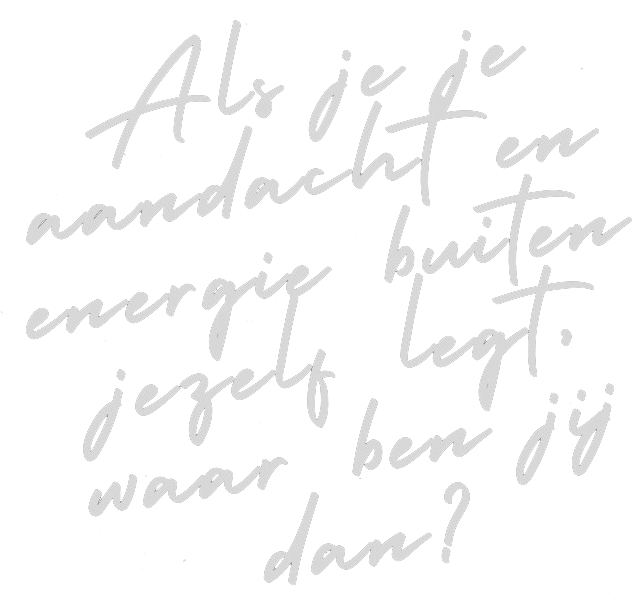 Als je je
aandacht en
energie buiten
jezelf legt,
waar ben jij
dan?